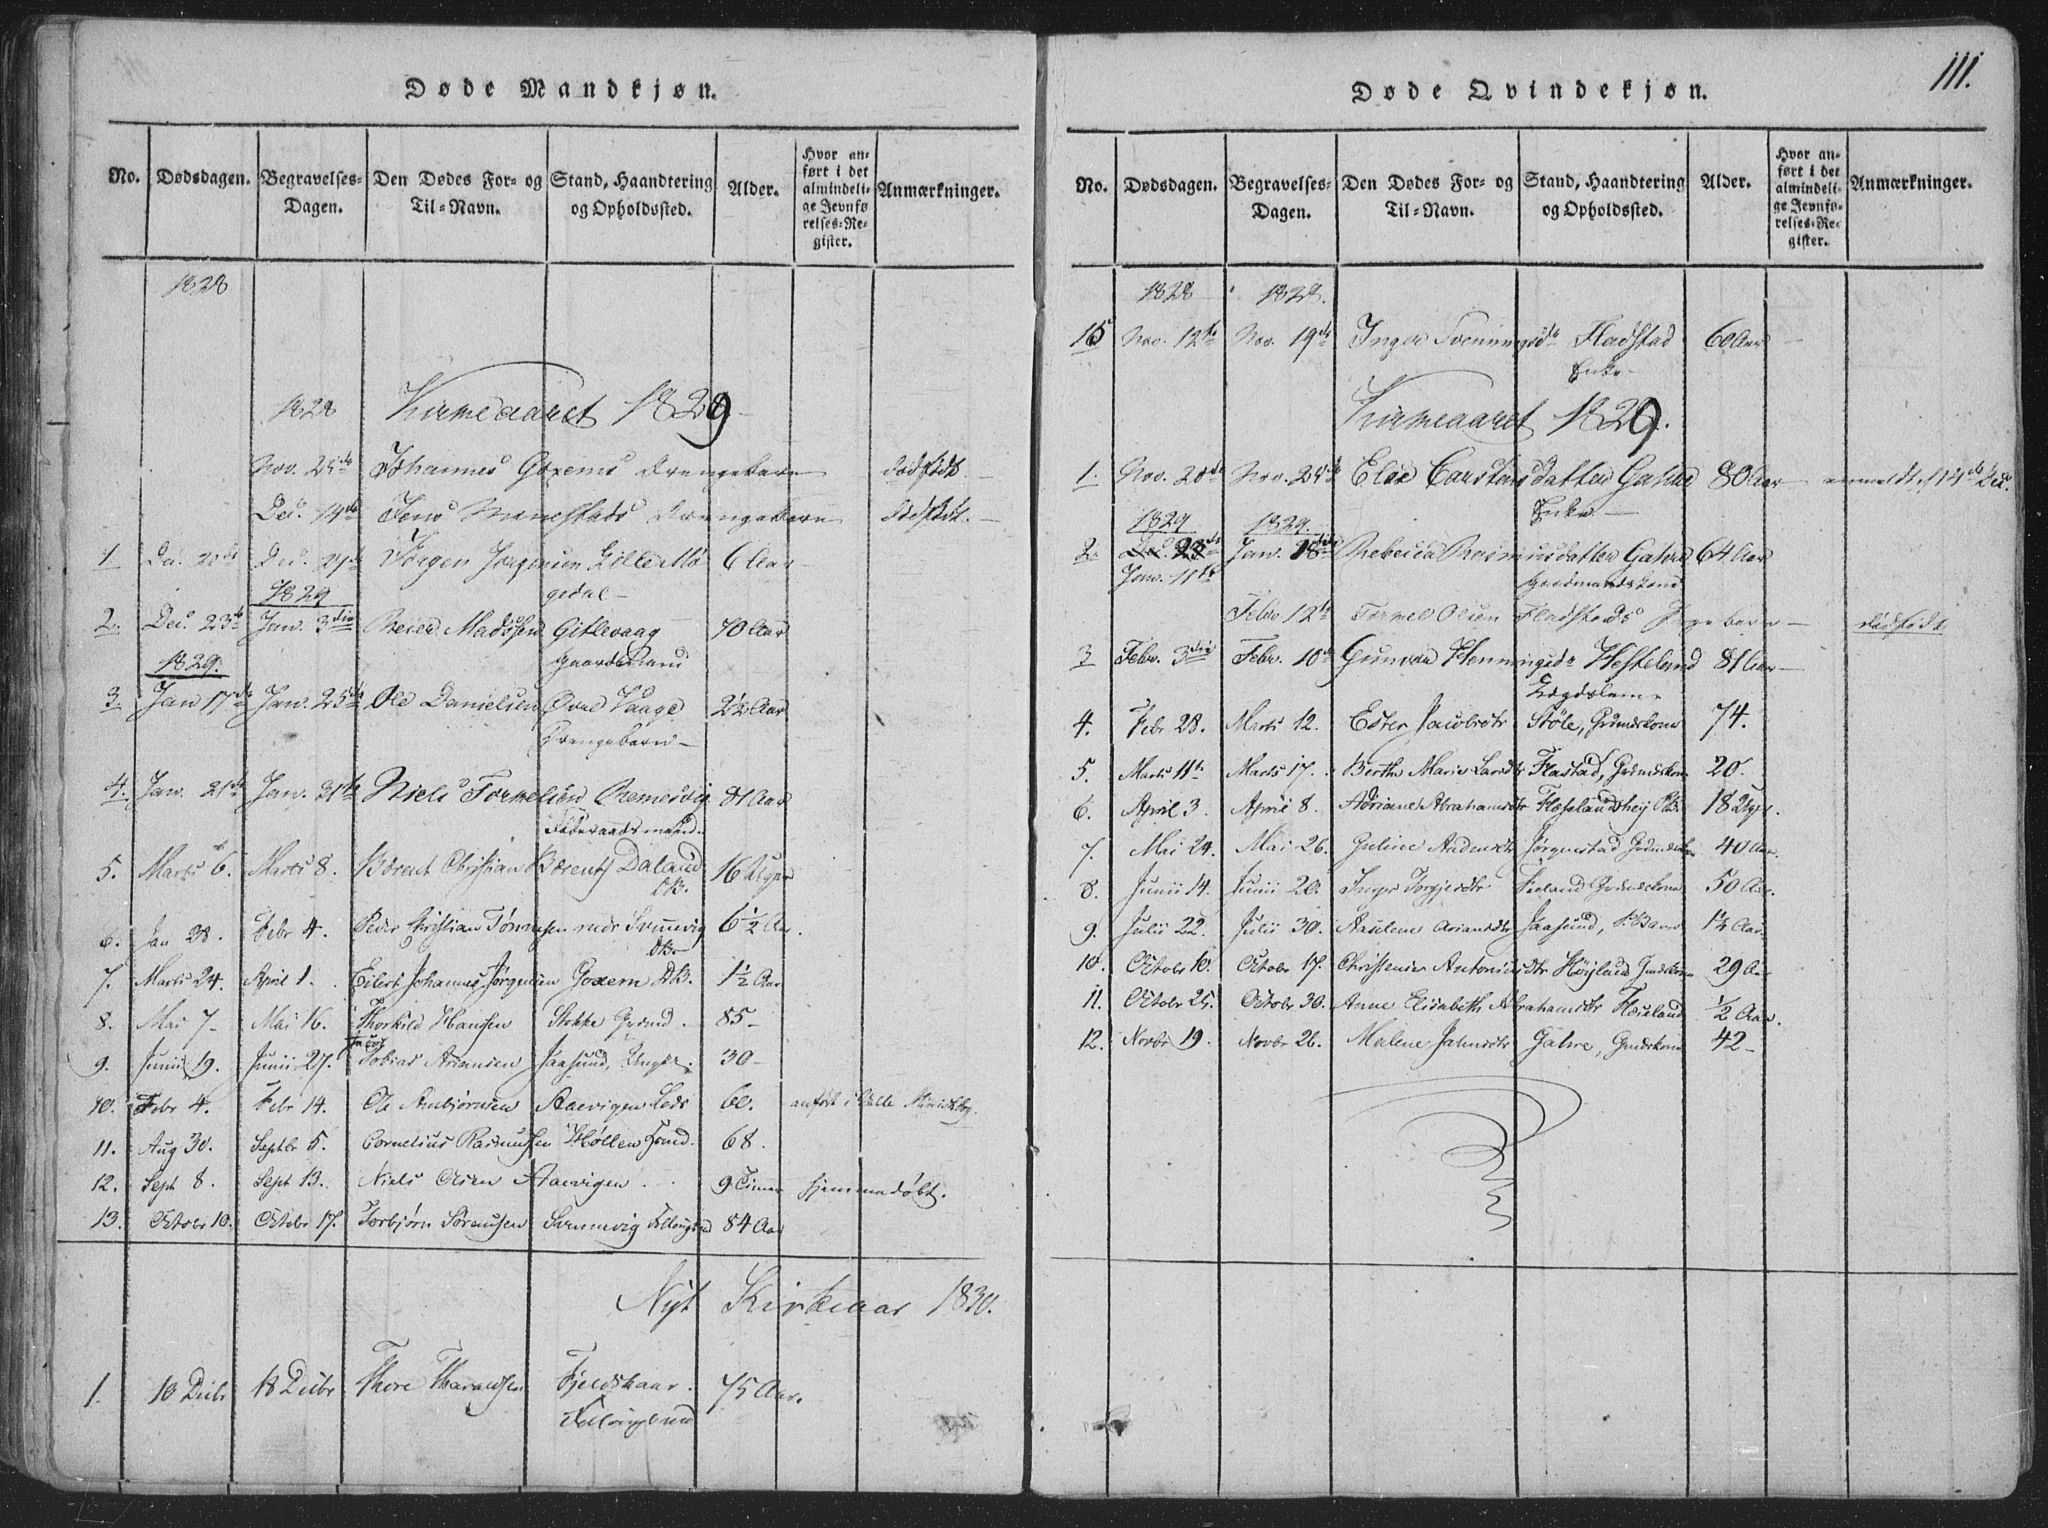 Døde Mandkjøn.
No. Dødsdagen. Begravelses-Dagen. Den Dødes For- og Til-Navn. Stand, Haandtering og Opholdssted. Alder. Hvor anført i det almindelige Jevnførelses-Register. Anmærkninger.
1828
1828 Kirkeaaret 1829
Nov. 25de Johannes Goxems Drengebarn dødfødt
Dec. 14de Jens Drengebarn dødfødt.
1 Dec. 20de Dec. 27de Jørgen Jørgensen Gillemøgedal 6 Aar
1829
2. Dec. 23de Jan. 3die Reier Madssen Gitlevaag 70 Aar
1829. Gaardmand
3. Jan 17de Jan. 25de Ole Danielsen Øvre Vaage 2½ Aar
Drengebarn
4. Jan. 21de Jan. 31te Niels Tormelsen Remesvig 81 Aar
Føderaadsmand.
5. Marts 6. Marts 8. Børent Christian Bærents Daland 16 Uger
DB.
6. Jan 28. Febr 4. Peder Christian Tønnesen nedr Svinevig 6½ Aar.
DB.
7. Marts 24. April 1. Eilert Johannes Jørgensen Goxem DB. 1½ Aar
8. Mai 7 Mai 16. Thorkild Hansen Stokke Grmd. 85
9. Junii 19. Junii 27. Tobias Ariansen Jaasund, 30
10. Febr 4. Febr 14. Ole Ambjørnsen Aaevigen Lods 60. anført i
11. Aug 30. Septbr 5. Cornelius Rasmussen Høllen 68.
12. Sept 8. Sept 13. Niels Olsen Aaevigen 9 Timer hjemmedøbt.
13. Octobr 10. Octobr 17. Torbjørn Sørensen Svinevig 84 Aar
Nyt Kirkeaar 1830.
1. 10 Decbr 18 Decbr Thore Tharaldsen Fjeldskaar. 75 Aar.
111.
Døde Qvindekjøn.
No. Dødsdagen. Begravelses-Dagen. Den Dødes For- og Til-Navn. Stand, Haandtering og Opholdssted. Alder. Hvor anført i det almindelige Jevnførelses-Register. Anmærkninger.
1828 1828.
15 Nov. 12te Nov. 19de Inger Svenningsdr Fladstad 60 Aar
Enke
Kirkeaaret 1829.
1. Nov. 20de Nov. 25de Else Carstensdatter Gahre 80 Aar anmeldt 14de Dec.
1829 1829. Enke
2. Dec. 23de Jan. 18de Rebecca Rasmusdatter Gahre 64 Aar
Jan. 11te Gaardmandskone
Febr 12te Tormel Olsen Fladstads Pigebarn dødfødt
3 Febr. 3die Febr. 10de Gunvor Henningsdr Hesteland 81 Aar
Lægdslem
4. Febr 28. Marts 12. Ester Jacobsdtr Støle, Grdmdskone 74.
5. Marts 11te Marts 17. Berthe Marie Larsdtr Flastad, Grdmdskone 20.
6. April 3. April 8. Adriane Abrahamsdtr Hæselandshei PB. 18 Uger.
7. Mai 24. Mai 26. Guline Andersdtr Jørgenstad Grdmdskone 40 Aar.
8. Junii 14. Junii 20. Inger Torgjersdtr Fieland Grdmdskone 50 Aar.
9. Julii 22. Julii 30. Aaslene Ariansdtr Jaasund, P. Barn 1½ Aar.
10. Octobr 10. Octobr 17. Christense Antonisdtr Høyland Grmdskone 29 Aar
11. Octobr 25. Octobr 30. Anne Elisabeth Abrahamsdtr Hæseland ½ Aar.
12. Novbr 19. Novbr 26. Malene Jahnsdtr Gahre, Grmdskone 42